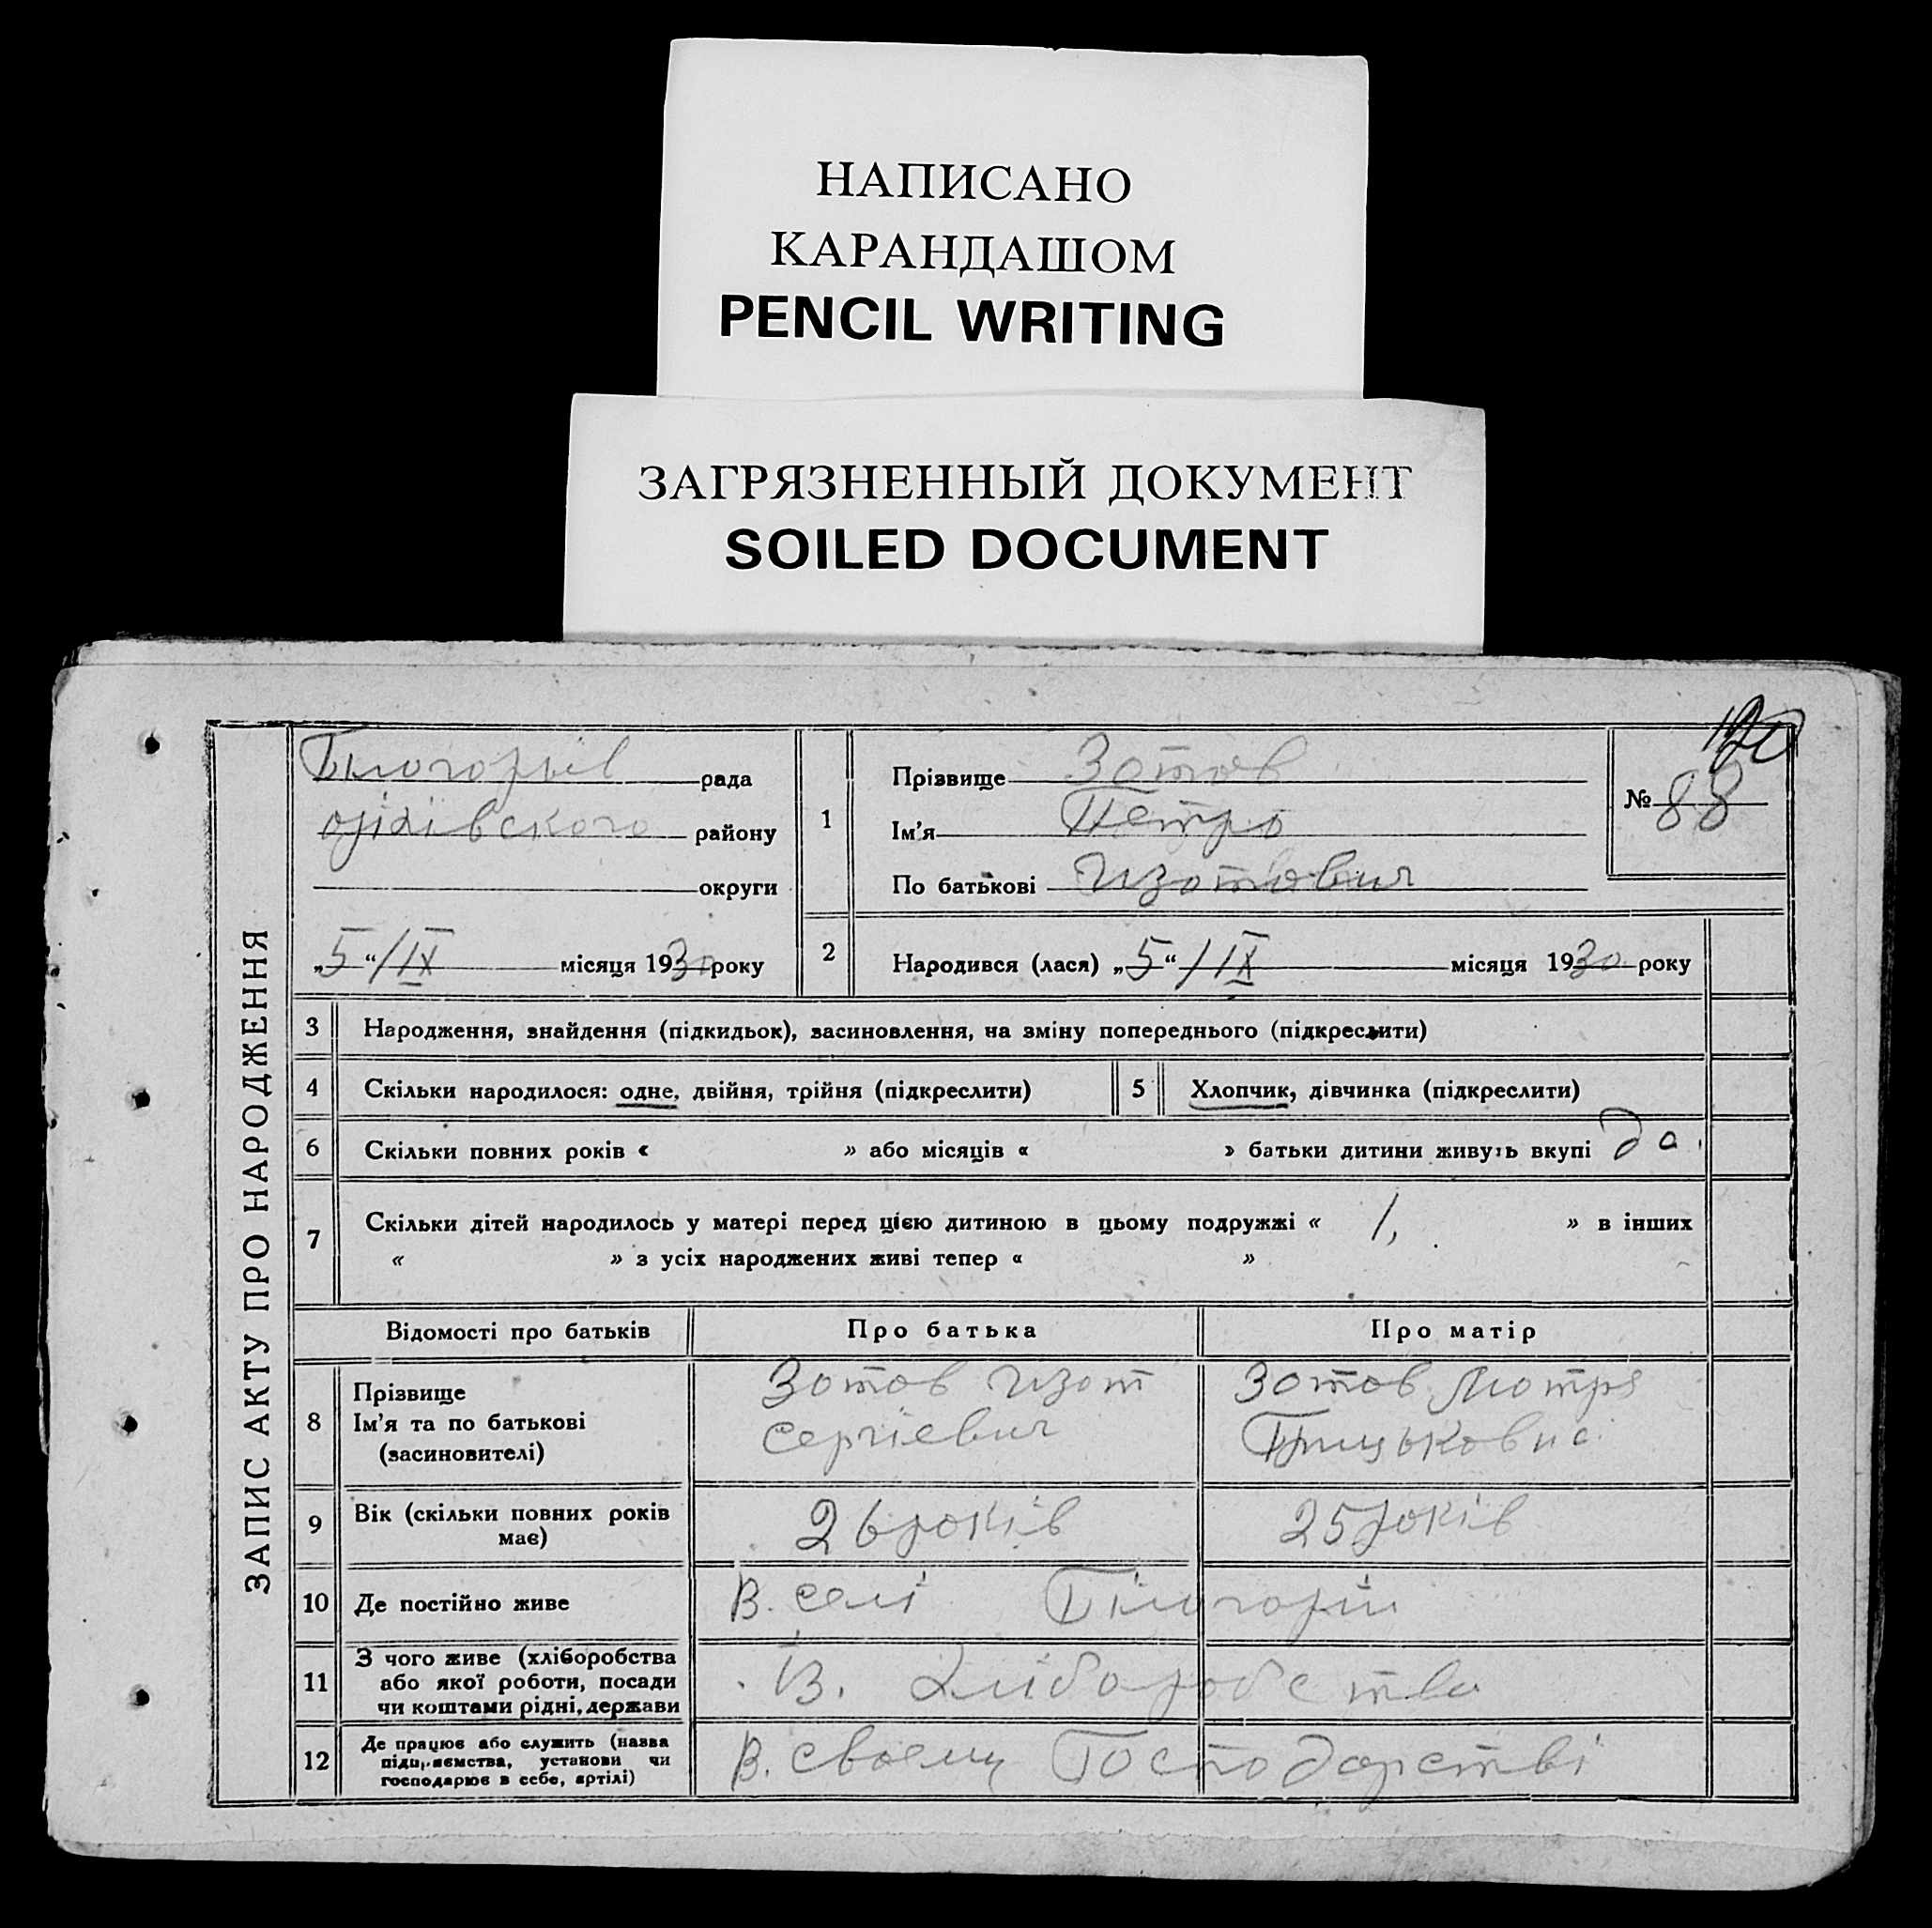 НАПИСАНО
КАРАНДАШОМ
PENCIL WRITING
ЗАГРЯЗНЕННЫЙ ДОКУМЕНТ
SOILED DOCUMENT
ЗАПИС АКТУ ПРО НАРОДЖЕННЯ
рада
оріхівського району
округи
„5“/IX місяця 1930 року
120
№ 88
1
Прізвище Зотов
Ім’я Петро
По батькові Изотович
2 Народився (лася) „5“/IX місяця 1930 року
3 Народження, знайдення (підкидьок), засиновлення, на зміну попереднього (підкреслити)
4 Скільки народилося: одне, двійня, трійня (підкреслити) 5 Хлопчик, дівчинка (підкреслити)
6 Скільки повних років « » або місяців « » батьки дитини живуть вкупі да.
7 Скільки дітей народилось у матері перед цією дитиною в цьому подружжі « 1, » в інших
« » з усіх народжених живі тепер « »
Відомості про батьків Про батька Про матір
8 Прізвище
Ім’я та по батькові
(засиновителі)
Зотов Изот
Сергіевич
Зотов Мотря
Грицьковна
9 Вік (скільки повних років
має)
26 років 25 років
10 Де постійно живе В. селі Білогорій
11 З чого живе (хліборобства
або якої роботи, посади
чи коштами рідні, держави
В. Хліборобства
12 Де працює або служить (назва
підприємства, установи чи
господарює в себе, артілі)
В. своему Господарстві